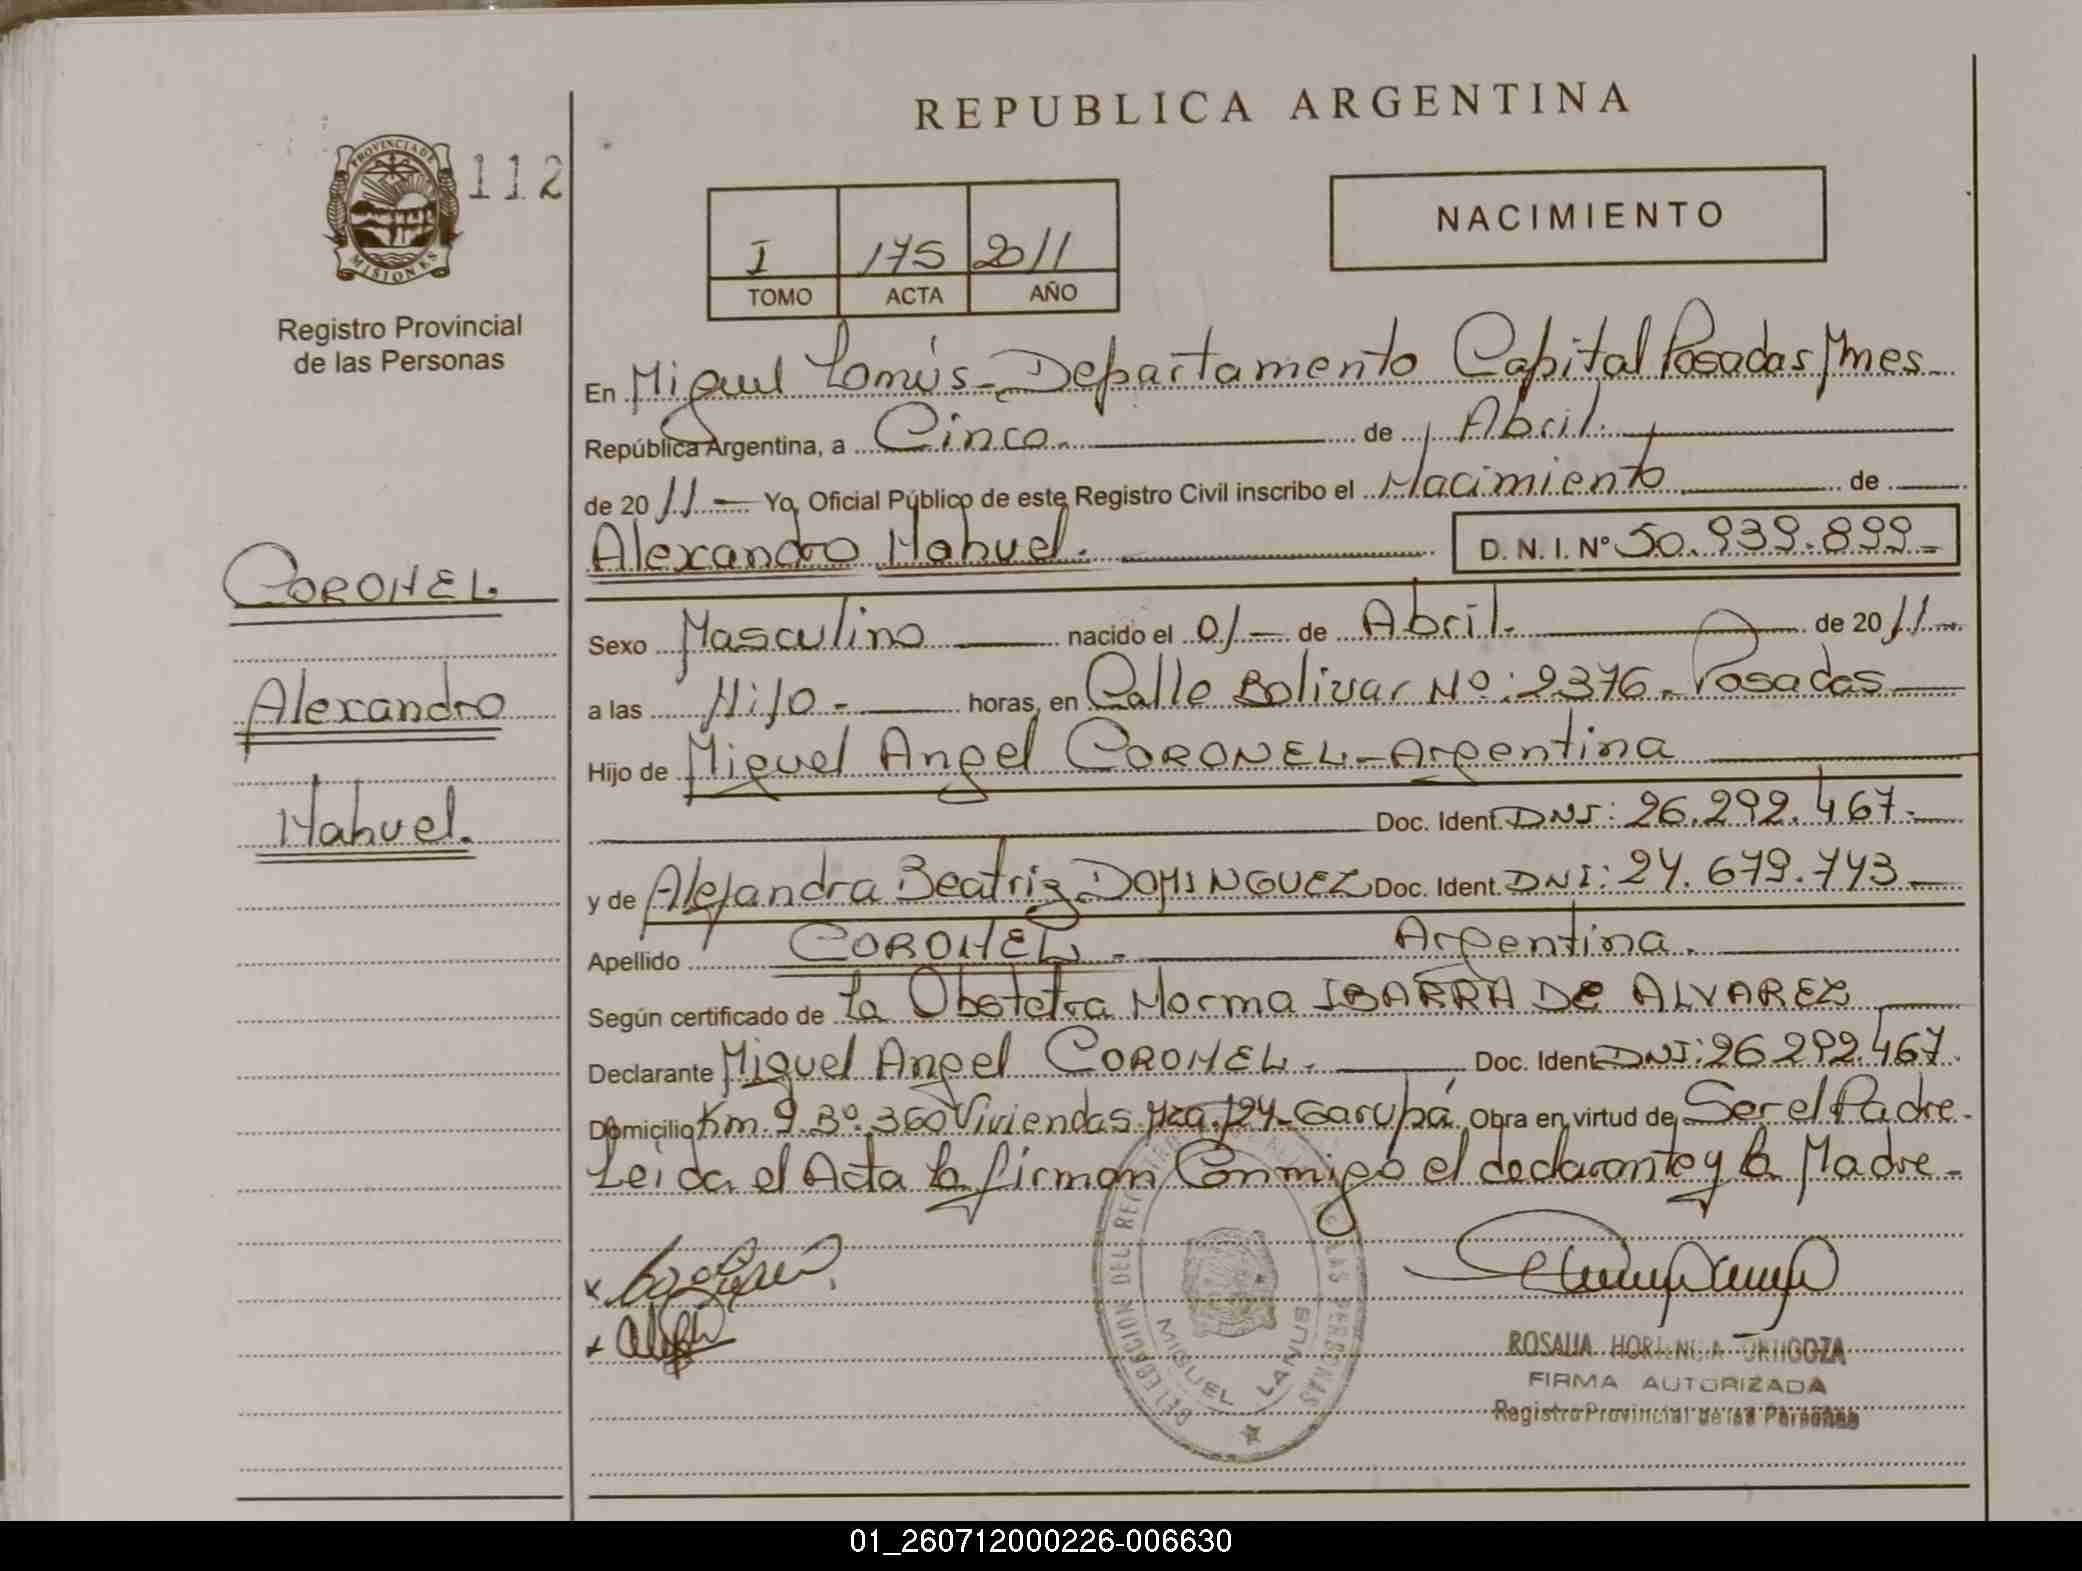 REPUBLICA ARGENTINA
PROVINCIA DE
MISIONES
112
Registro Provincial
de las Personas
NACIMIENTO
I 175 2011
TOMO ACTA AÑO
En Miguel Lanús - Departamento Capital Posadas Mnes
República Argentina, a Cinco de Abril.
de 2011 Yo, Oficial Público de este Registro Civil inscribo el Nacimiento de
Alexandro Nahuel. D. N. I. Nº 50.939.899
CORONEL.
Alexandro
Nahuel.
Sexo Masculino nacido el 01 de Abril. de 2011
a las horas, en Calle Bolivar Nº: 2376 - Posadas
Hijo de Miguel Angel CORONEL - Argentina
Doc. Ident. DNI: 26.292.467.
y de Alejandra Beatriz DOMINGUEZ Doc. Ident. DNI: 24.679.743
Apellido CORONEL. Argentina.
Según certificado de La Obstetra Norma IBARRA DE ALVAREZ
Declarante Miguel Angel CORONEL. Doc. Ident. DNI: 26.292.467.
Domicilio Km. 9. Bº. 360 Viviendas. Mza. 124 - Garupá Obra en virtud de Ser el Padre.
Leida el Acta la firman Conmigo el declarante y la Madre.
DELEGACION DEL REGISTRO LAS PERSONAS
MIGUEL LANUS
ROSALIA
FIRMA AUTORIZADA
Registro Provincial de las Personas
01_260712000226-006630